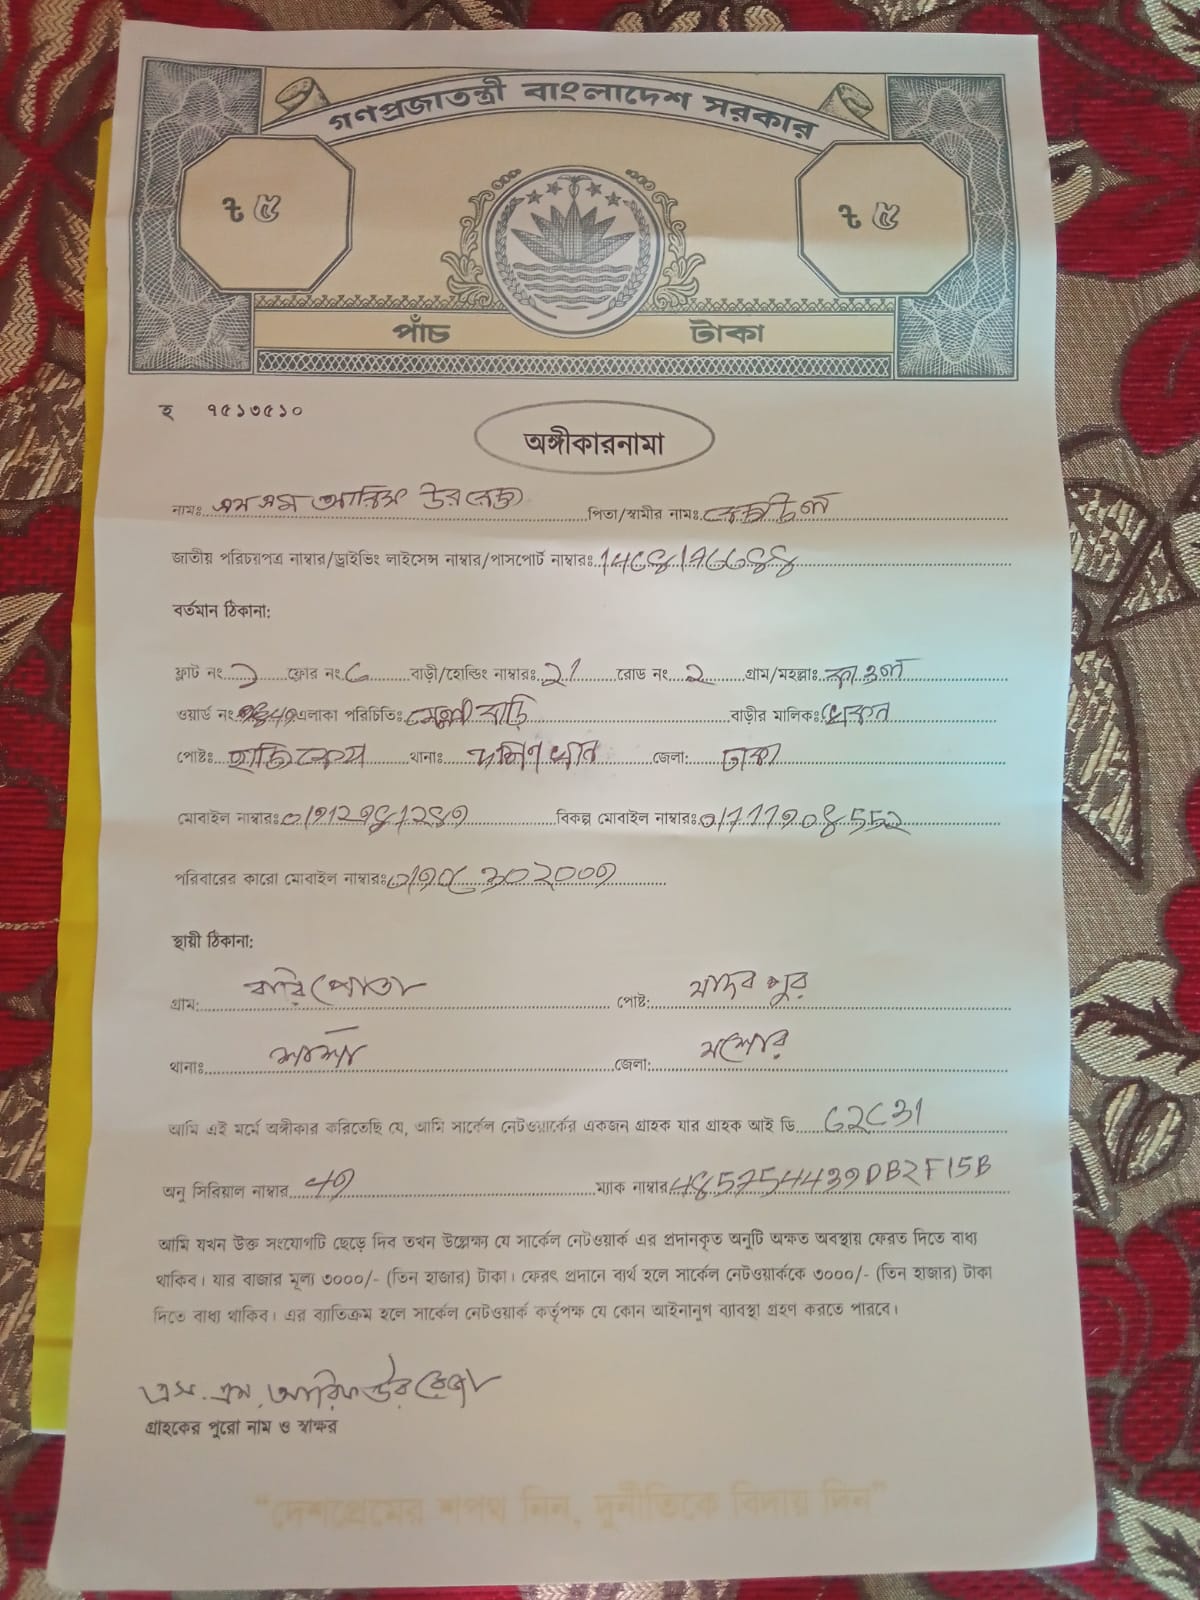 গণপ্রজাতন্ত্রী বাংলাদেশ সরকার
৳ ৫ ৳ ৫
পাঁচ টাকা
হ ৭৫১৩৫১০
অঙ্গীকারনামা
নামঃ এস এম আরিফ উর রেজা পিতা/স্বামীর নামঃ
জাতীয় পরিচয়পত্র নাম্বার/ড্রাইভিং লাইসেন্স নাম্বার/পাসপোর্ট নাম্বারঃ
বর্তমান ঠিকানা:
ফ্লাট নং ১ ফ্লোর নং ৬ বাড়ী/হোল্ডিং নাম্বারঃ 21 রোড নং ২ গ্রাম/মহল্লাঃ কাওলা
ওয়ার্ড নং এলাকা পরিচিতিঃ মোল্লা বাড়ি বাড়ীর মালিকঃ
পোষ্টঃ হাজি ক্যাম্প থানাঃ দক্ষিণ খান জেলা: ঢাকা
মোবাইল নাম্বারঃ বিকল্প মোবাইল নাম্বারঃ
পরিবারের কারো মোবাইল নাম্বারঃ
স্থায়ী ঠিকানা:
গ্রাম: বারি পোতা পোষ্ট: যাদব পুর
থানাঃ শার্শা জেলা: যশোর
আমি এই মর্মে অঙ্গীকার করিতেছি যে, আমি সার্কেল নেটওয়ার্কের একজন গ্রাহক যার গ্রাহক আই ডি
অনু সিরিয়াল নাম্বার ম্যাক নাম্বার
আমি যখন উক্ত সংযোগটি ছেড়ে দিব তখন উল্লেক্ষ্য যে সার্কেল নেটওয়ার্ক এর প্রদানকৃত অনুটি অক্ষত অবস্থায় ফেরত দিতে বাধ্য
থাকিব। যার বাজার মূল্য ৩০০০/- (তিন হাজার) টাকা। ফেরৎ প্রদানে ব্যর্থ হলে সার্কেল নেটওয়ার্ককে ৩০০০/- (তিন হাজার) টাকা
দিতে বাধ্য থাকিব। এর ব্যাতিক্রম হলে সার্কেল নেটওয়ার্ক কর্তৃপক্ষ যে কোন আইনানুগ ব্যাবস্থা গ্রহণ করতে পারবে।
এস. এম. আরিফ উর রেজা
গ্রাহকের পুরো নাম ও স্বাক্ষর
“দেশপ্রেমের শপথ নিন, দুর্নীতিকে বিদায় দিন”